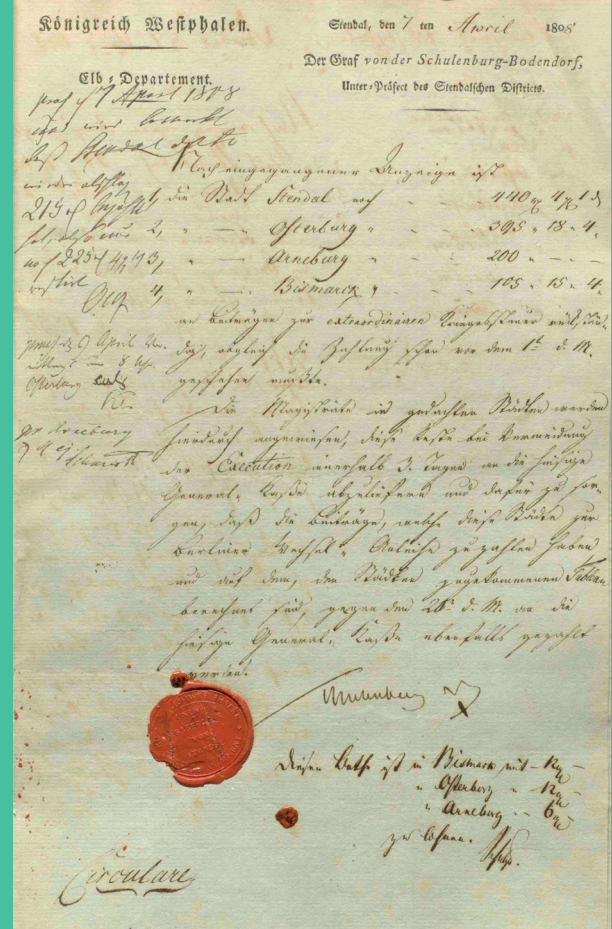 Königreich Westphalen.
Elb-Departement.
Stendal, den 7 ten April 1808
Der Graf von der Schulenburg-Bodendorf,
Unter-Präfect des Stendalschen Districts.
April 1808
wird bemerkt
daß Stendal
215
225
Nach eingegangener Anzeige ist
1, die Stadt Stendal noch - - - 440 4 1
2, " — Osterburg " - - 395 " 18 " 4.
3, " — Arneburg " - - 200 " - - -
4, " — Bismarck " - - 105 " 15 " 4.
an Beiträgen zur extraordinairen Kriegessteuer rückstän-
dig, obgleich die Zahlung schon vor dem 1t d. M.
geschehen mußte.
Die Magisträte in gedachten Städten werden
hierdurch angewiesen, diese Reste bei Vermeidung
der Execution innerhalb 3. Tagen an die hiesige
General-Kaße abzuliefern und dafür zu sor-
gen, daß die Beiträge, welche diese Städte zur
Berliner Wechsel-Anleihe zu zahlen haben
und auf dem, den Städten zugekommenen Tableau
berechnet sind, gegen den 26t d. M. an die
hiesige General-Kaße ebenfalls gezahlt
werden.
Schulenburg
April
Osterburg
Arneburg
Diesen Bothe ist in Bismarck mit - 12
" Osterburg " - 12
" Arneburg - - 6
zu lohnen.
Circulare